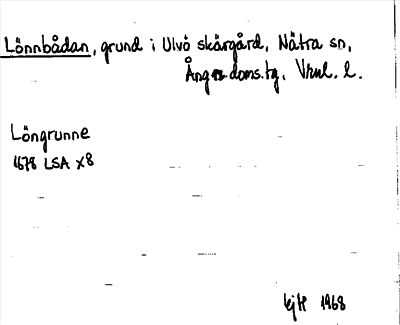 Lönnbådan, grund i Ulvö skärgård, Nätra sn,
Ång doms.tg. Vnl. l.
Löngrunne
1678 LSA X8
1968